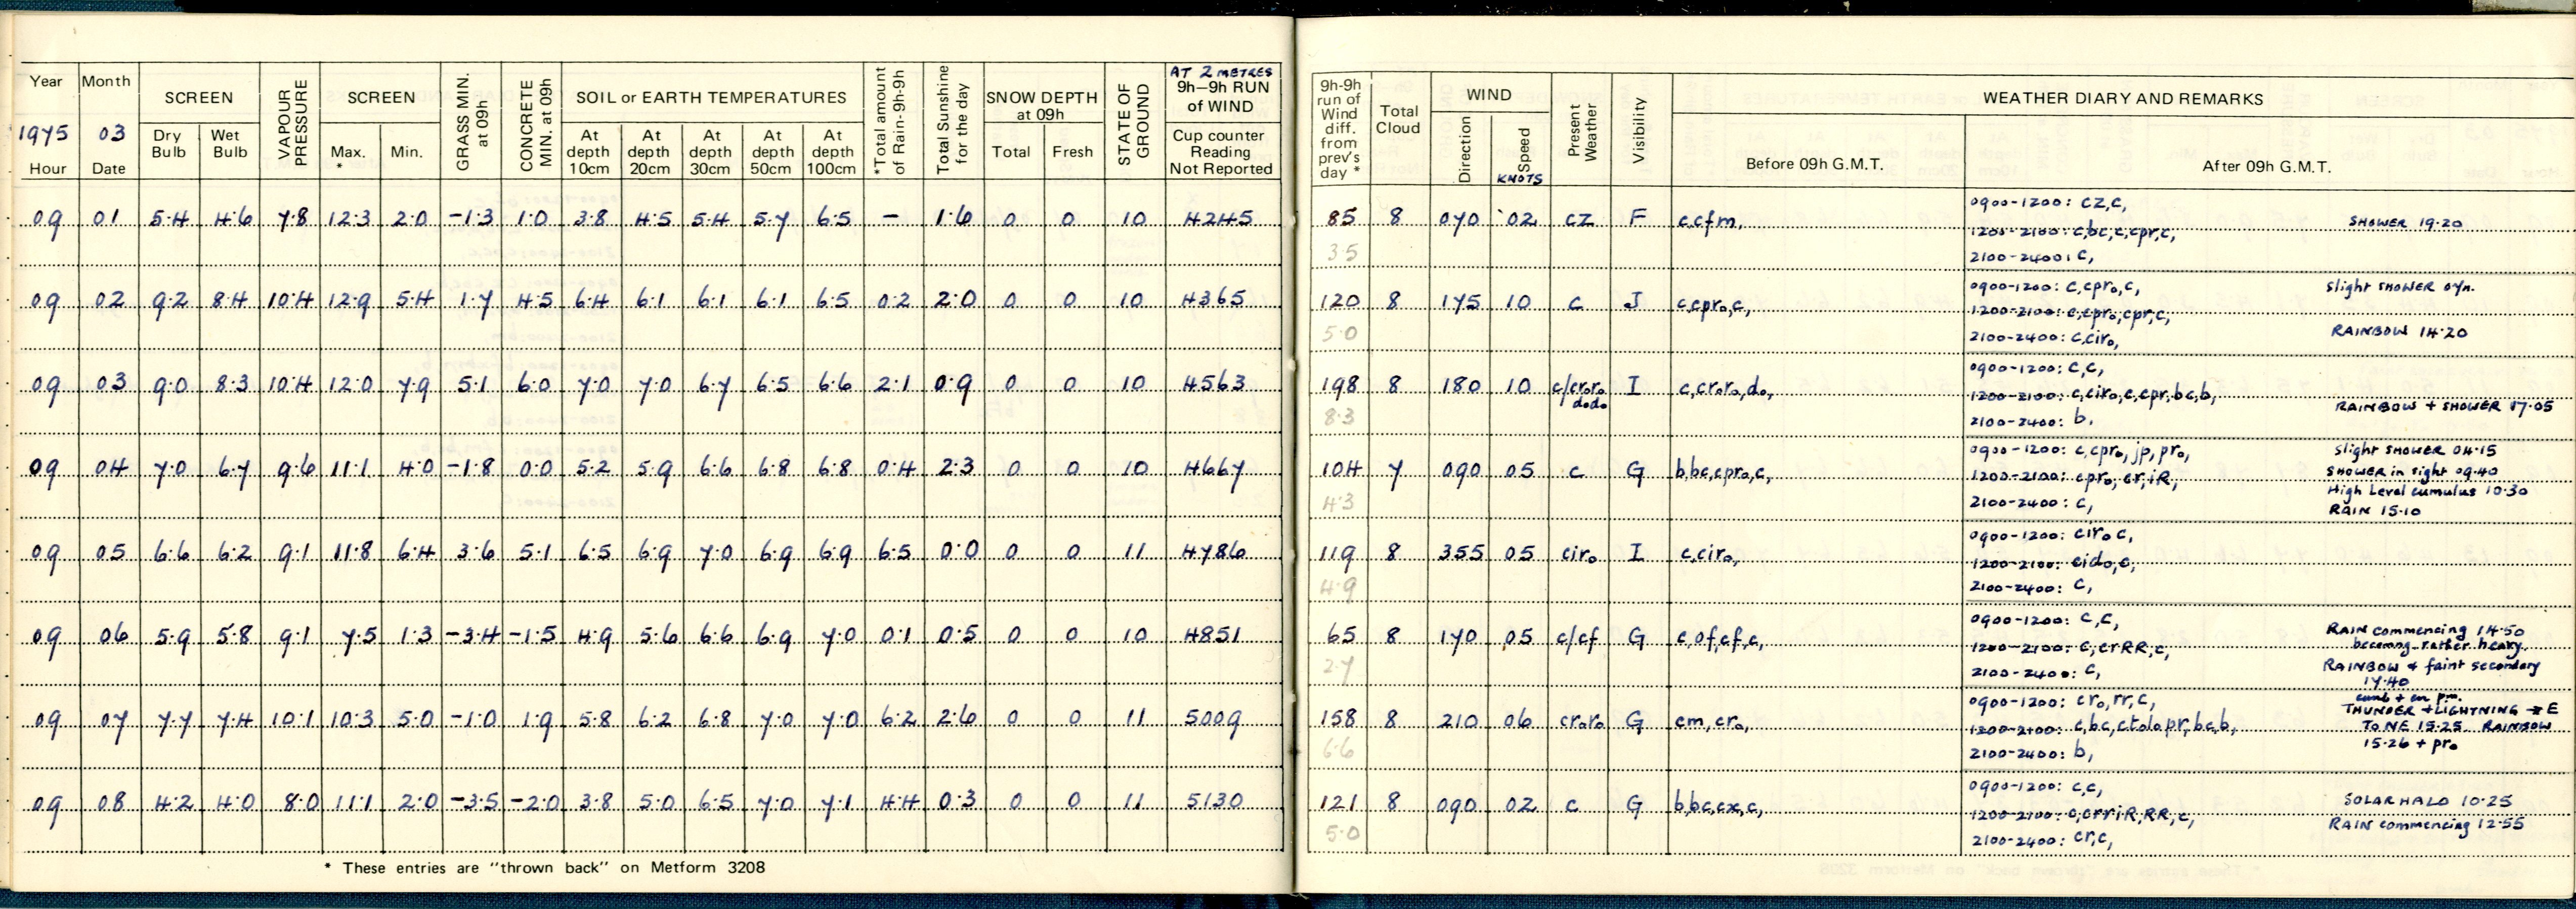 Year Month SCREEN VAPOUR PRESSURE SCREEN GRASS MIN. at 09h CONCRETE MIN. at 09h SOIL or EARTH TEMPERATURES *Total amount of Rain-9h-9h Total Sunshine for the day SNOW DEPTH at 09h STATE OF GROUND AT 2 METRES 9h–9h RUN of WIND
1975 03 Dry Bulb Wet Bulb Max. * Min. At depth 10cm At depth 20cm At depth 30cm At depth 50cm At depth 100cm Total Fresh Cup counter Reading Not Reported
Hour Date
09 01 5.4 4.6 7.8 12.3 2.0 -1.3 1.0 3.8 4.5 5.4 5.7 6.5 - 1.6 0 0 10 4245
09 02 9.2 8.4 10.4 12.9 5.4 1.7 4.5 6.4 6.1 6.1 6.1 6.5 0.2 2.0 0 0 10 4365
09 03 9.0 8.3 10.4 12.0 7.9 5.1 6.0 7.0 7.0 6.7 6.5 6.6 2.1 0.9 0 0 10 4563
09 04 7.0 6.7 9.6 11.1 4.0 -1.8 0.0 5.2 5.9 6.6 6.8 6.8 0.4 2.3 0 0 10 4667
09 05 6.6 6.2 9.1 11.8 6.4 3.6 5.1 6.5 6.9 7.0 6.9 6.9 6.5 0.0 0 0 11 4786
09 06 5.9 5.8 9.1 7.5 1.3 -3.4 -1.5 4.9 5.6 6.6 6.9 7.0 0.1 0.5 0 0 10 4851
09 07 7.7 7.4 10.1 10.3 5.0 -1.0 1.9 5.8 6.2 6.8 7.0 7.0 6.2 2.6 0 0 11 5009
09 08 4.2 4.0 8.0 11.1 2.0 -3.5 -2.0 3.8 5.0 6.5 7.0 7.1 4.4 0.3 0 0 11 5130
* These entries are "thrown back" on Metform 3208
9h-9h run of Wind diff. from prev's day * Total Cloud WIND Present Weather Visibility WEATHER DIARY AND REMARKS
Direction Speed KNOTS Before 09h G.M.T. After 09h G.M.T.
85 8 070 02 cz F c,cfm, 0900-1200: cz,c,
3.5 1200-2100: c,bc,c,cpr,c, SHOWER 19.20
2100-2400: c,
120 8 175 10 c J c,cpro,c, 0900-1200: c,cpro,c, Slight SHOWER 07n.
5.0 1200-2100: c,cpro,cpr,c, RAINBOW 14.20
2100-2400: c,ciro,
198 8 180 10 c/croro dodo I c,croro,do, 0900-1200: c,c,
8.3 1200-2100: c,ciro,c,cpr,bc,b, RAINBOW + SHOWER 17.05
2100-2400: b,
104 7 090 05 c G b,bc,cpro,c, 0900-1200: c,cpro,jp,pro, Slight SHOWER 04.15
4.3 1200-2100: cpro,cr,iR, SHOWER in sight 09.40
High Level cumulus 10.30
2100-2400: c, RAIN 15.10
119 8 355 05 ciro I c,ciro, 0900-1200: ciro c,
4.9 1200-2100: cido,c,
2100-2400: c,
65 8 170 05 c/cf G c,of,cf,c, 0900-1200: c,c, RAIN commencing 14.50
2.7 1200-2100: c,crRR,c, becoming rather heavy.
2100-2400: c, RAINBOW & faint secondary
17.40
158 8 210 06 croro G cm,cro, 0900-1200: cro,rr,c, cumb + cu pm.
6.6 THUNDER + LIGHTNING E
1200-2100: c,bc,ctolo,pr,bc,b, TO NE 15.25 RAINBOW
2100-2400: b, 15.26 + pro
121 8 090 02 c G b,bc,cx,c, 0900-1200: c,c, SOLAR HALO 10.25
5.0 1200-2100: c,crriR,RR,c, RAIN commencing 12.55
2100-2400: cr,c,